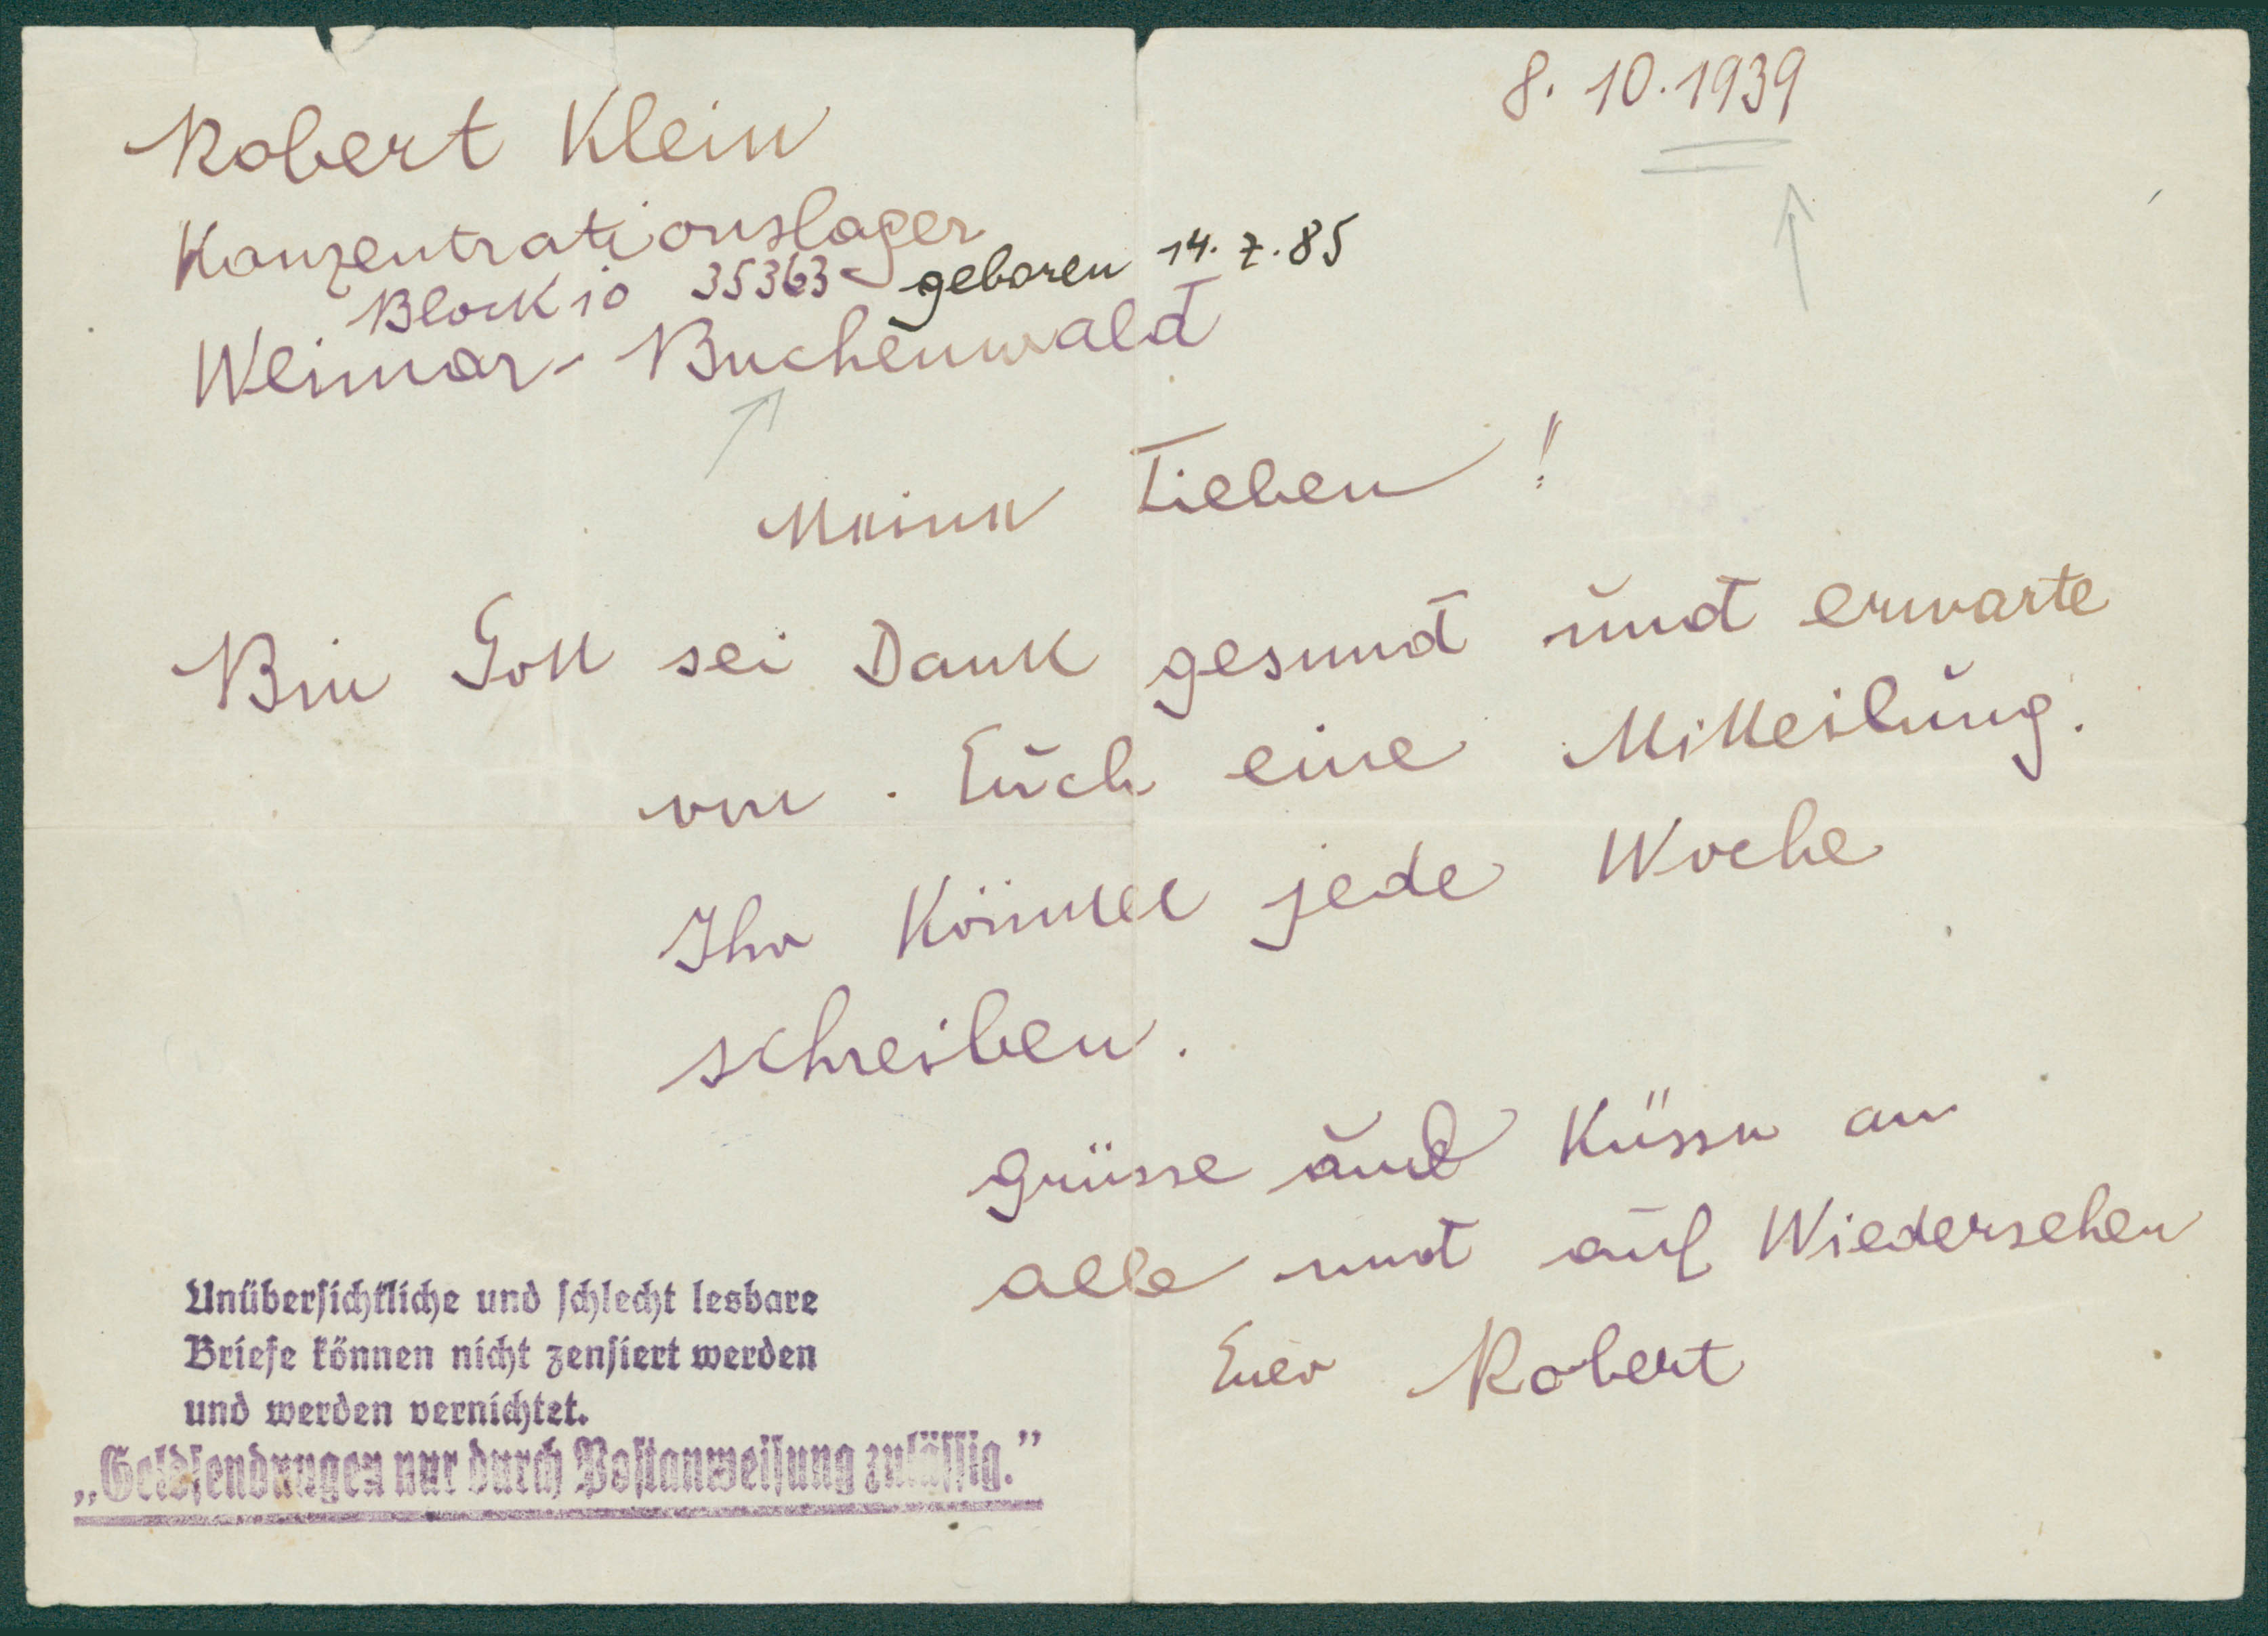 8. 10. 1939
Robert Klein
Konzentrationslager
Block 10 35363 geboren 14. 7. 85
Weimar - Buchenwald
Meine Lieben!
Bin Gott sei Dank gesund und erwarte
von Euch eine Mitteilung.
Ihr könnet jede Woche
schreiben.
Grüsse und Küsse an
alle und auf Wiedersehen
Euer Robert
Unübersichtliche und schlecht lesbare
Briefe können nicht zensiert werden
und werden vernichtet.
„Geldsendungen nur durch Postanweisung zulässig.”